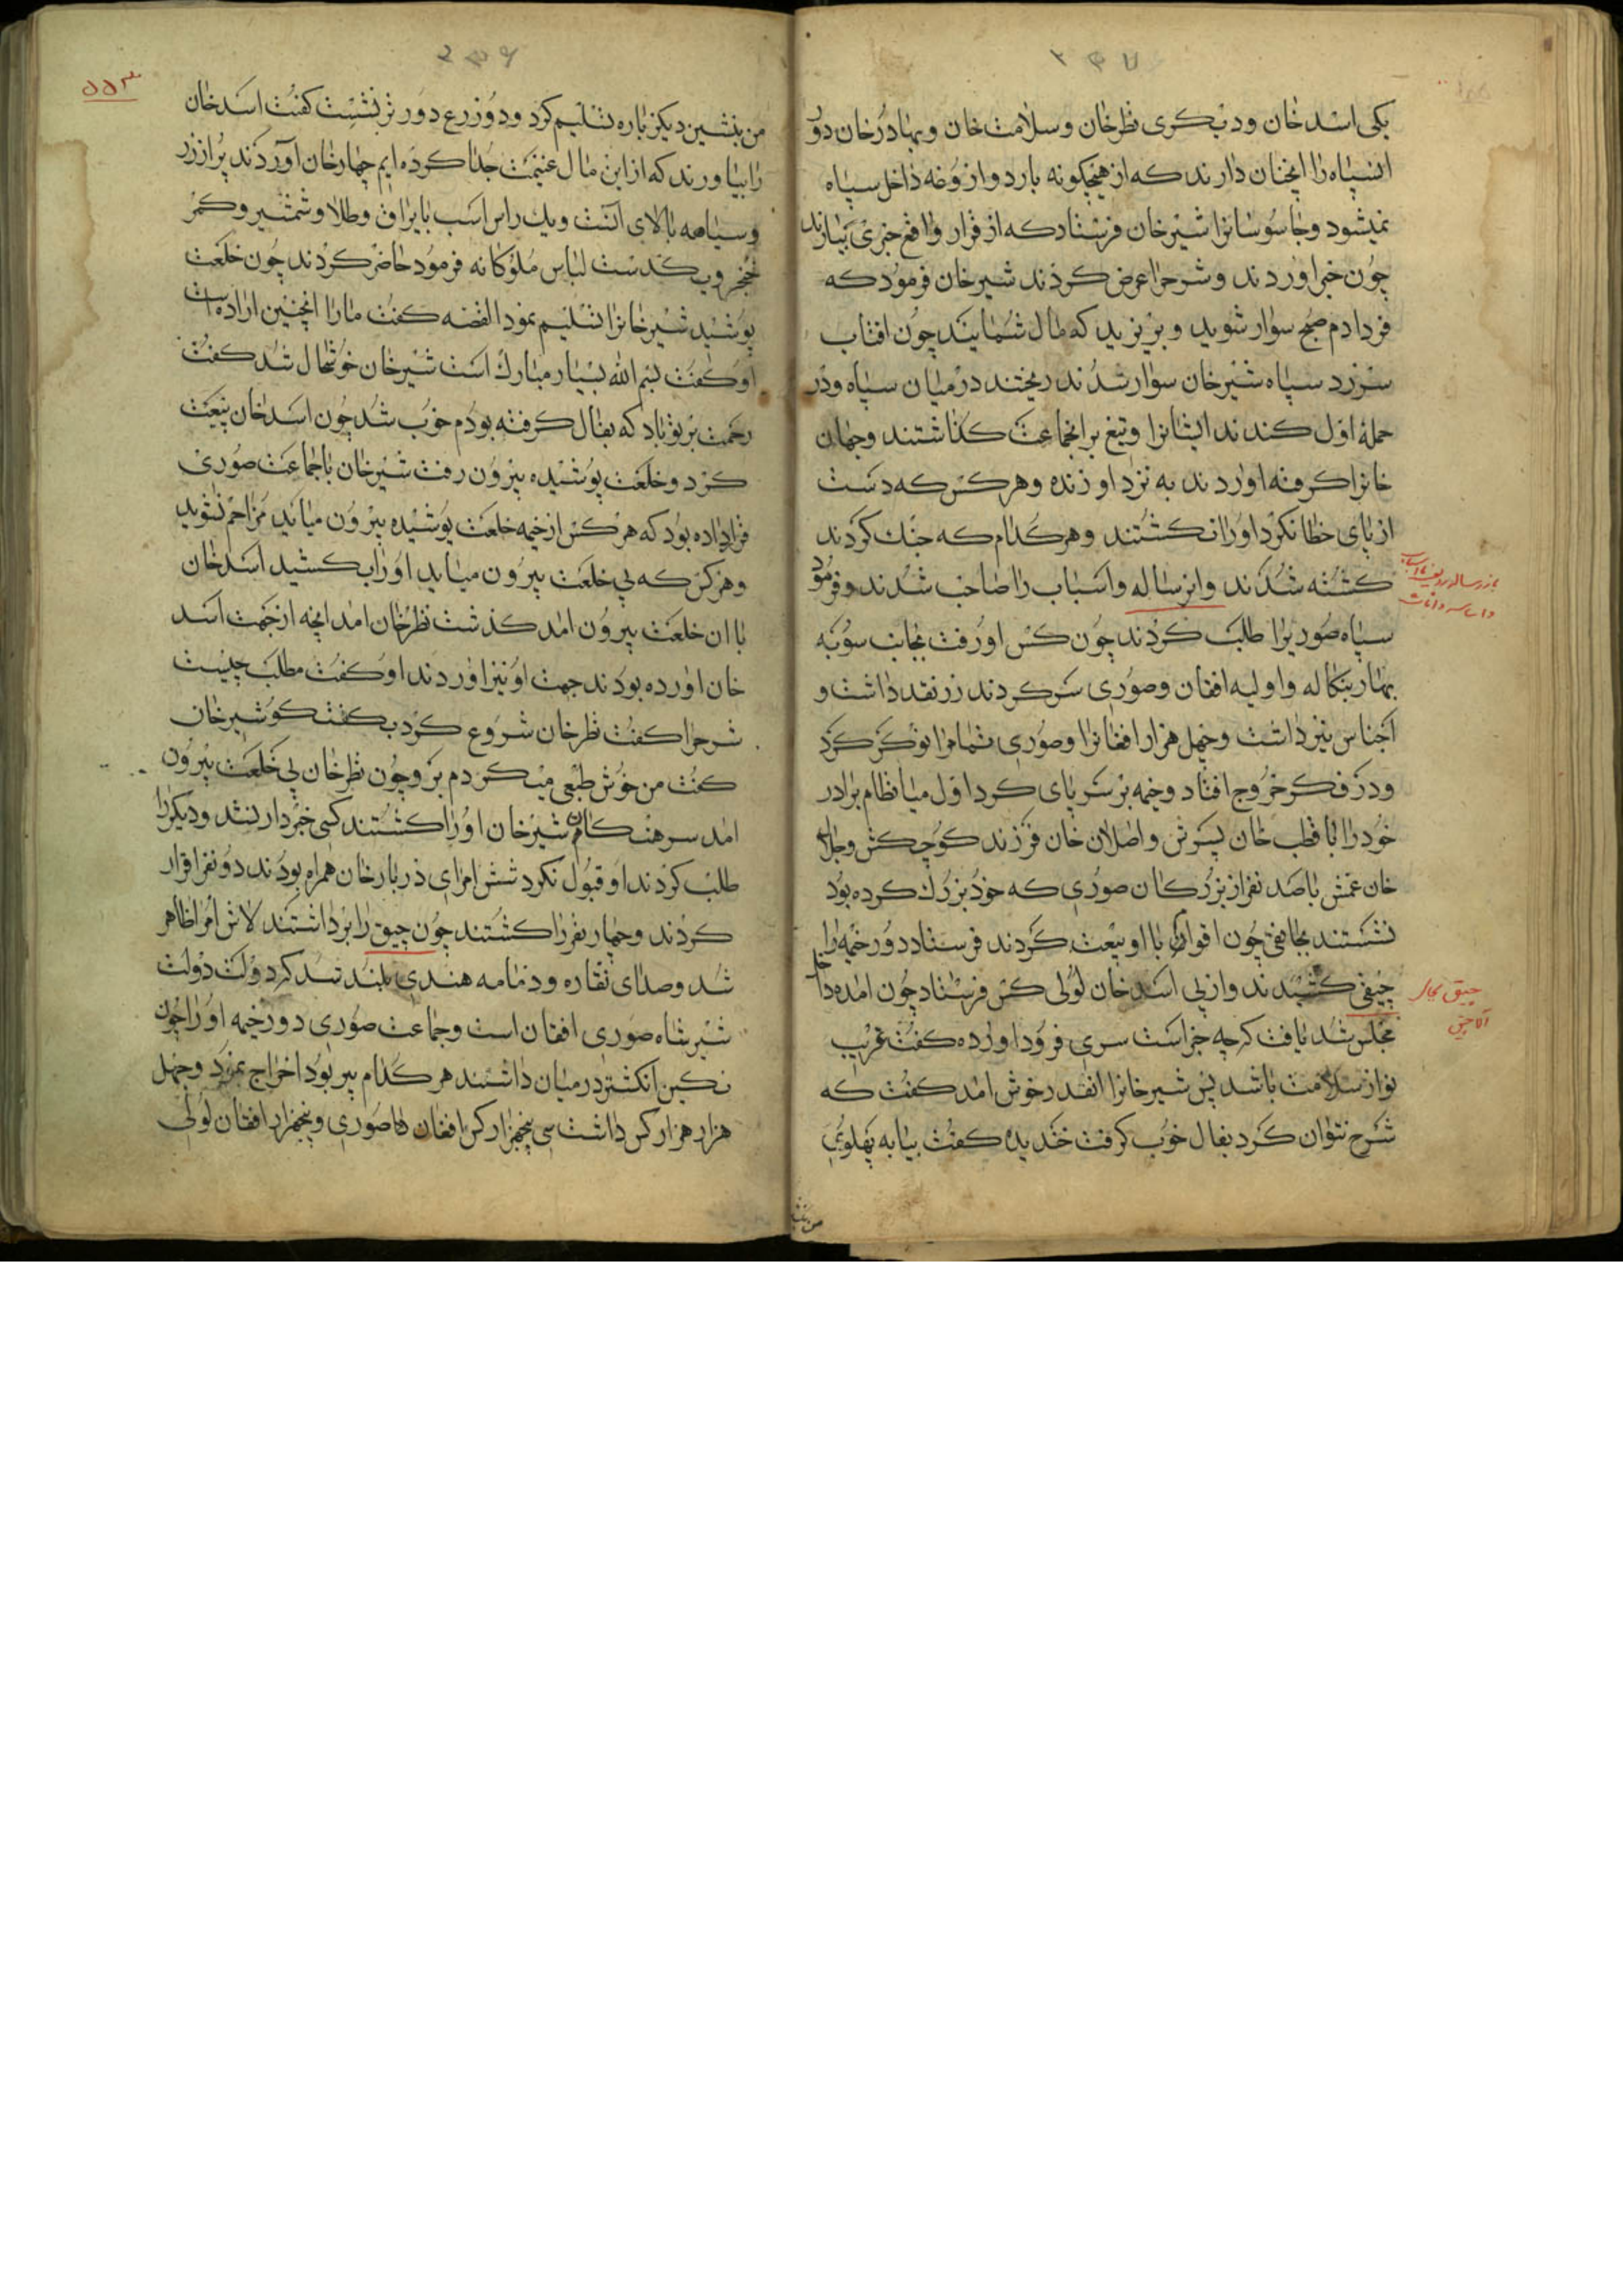 ۲۴۷
یکی اسد خان و دیگری نظر خان و سلامت خان و بهادر خان دور
انسپاه را انچنان دارند که از هیچکونه بارد و ازوغه داخل سپاه
نمیشود و جاسوسانرا شیر خان فرستاد که از قرار واقع خبری بیارند
چون خبر اوردند و شرح را عرض کردند شیر خان فرمود که
فردا دم صبح سوار شوید و بریزید که مال شمایند چون افتاب
سر زد سپاه شیر خان سوار شدند ریختند در میان سپاه و در
حمله اول کندند ایشانرا و تیغ بر انجماعت کذاشتند و جهان
خانرا کرفته اوردند به نزد او زنده و هر کس که دست
از پای خطا نکرد اورا نکشتند و هر کدام که جنک کردند
کشته شدند وانرساله و اسباب را صاحب شدند و فرمود
سپاه صوریرا طلب کردند چون کس او رفت بجانب سوبه
بهار بنکاله و اولیه افغان و صوری سر کردند زر نقد داشت و
اجناس نیز داشت و چهل هزار افغانرا و صوری تمامرا نوکر کرد
و در فکر خروج افتاد و خیمه بر سر پای کرد اول میا نظام برادر
خود را با قطب خان پسرش و اصلان خان فرزند کوچکش و جلال
خان عمش با صد نفر از بزرکان صوری که خود بزرک کرده بود
نشستند بجانقی چون اقوام با او بیعت کردند فرستاد دور خیمه را
چیقی کشیدند و از پی اسد خان لولی کس فرستاد چون امده داخل
مجلس شد یافت که چه خبر است سری فرود اورده کفت غریب
نواز سلامت باشد پس شیر خانرا انقدر خوش امد کفت که
شرح نتوان کرد بفال خوب کرفت خندیده کفت بیا به پهلوی
من بنشین
چیق بجار
۲۴۶
۵۵۳
من بنشین دیکر باره تسلیم کرد و دو زرع دورتر نشست کفت اسد خان
را بیاورند که از این مال غنیمت جدا کرده ایم چهار خان اوردند پر از زر
و سیاهه بالای انست و یک راس اسب با یراق و طلا و شمشیر و کمر
خنجر و یکدست لباس ملوکانه فرمود حاضر کردند چون خلعت
پوشید شیر خانرا تسلیم نمود القصه کفت مارا انچنین اراده است
او کفت بسم الله بسیار مبارک است شیر خان خوشحال شد کفت
رحمت بر تو باد که بفال کرفته بودم خوب شد چون اسد خان بیعت
کرد و خلعت پوشیده بیرون رفت شیر خان با جماعت صوری
قرار داده بود که هر کس از خیمه خلعت پوشیده بیرون میاید مزاحم نشوید
و هر کس که بی خلعت بیرون میاید اورا بکشید اسد خان
با ان خلعت بیرون امد کذشت نظر خان امد انچه از جهت اسد
خان اورده بودند جهت او نیز اوردند او کفت مطلب چیست
شرح را کفت نظر خان شروع کرد بکفتکو شیر خان
کفت من خوش طبعی میکردم برو چون نظر خان بی خلعت بیرون
امد سرهنکان شیر خان اورا کشتند کسی خبردار نشد و دیکر را
طلب کردند او قبول نکرد شش امرای دربار خان همراه بودند دو نفر اقرار
کردند و چهار نفر را کشتند چون چیق را برداشتند لاش امرا ظاهر
شد و صدای نقاره و دمامه هندی بلند شد که دولت دولت
شیر شاه صوری افغان است و جماعت صوری دور خیمه اورا چون
نکین انکشتر در میان داشتند هر کدام پیر بود اخراج نمود و چهل
هزار هزار کس داشت سی پنجهزار کس افغان صوری و پنجهزار افغان لولی